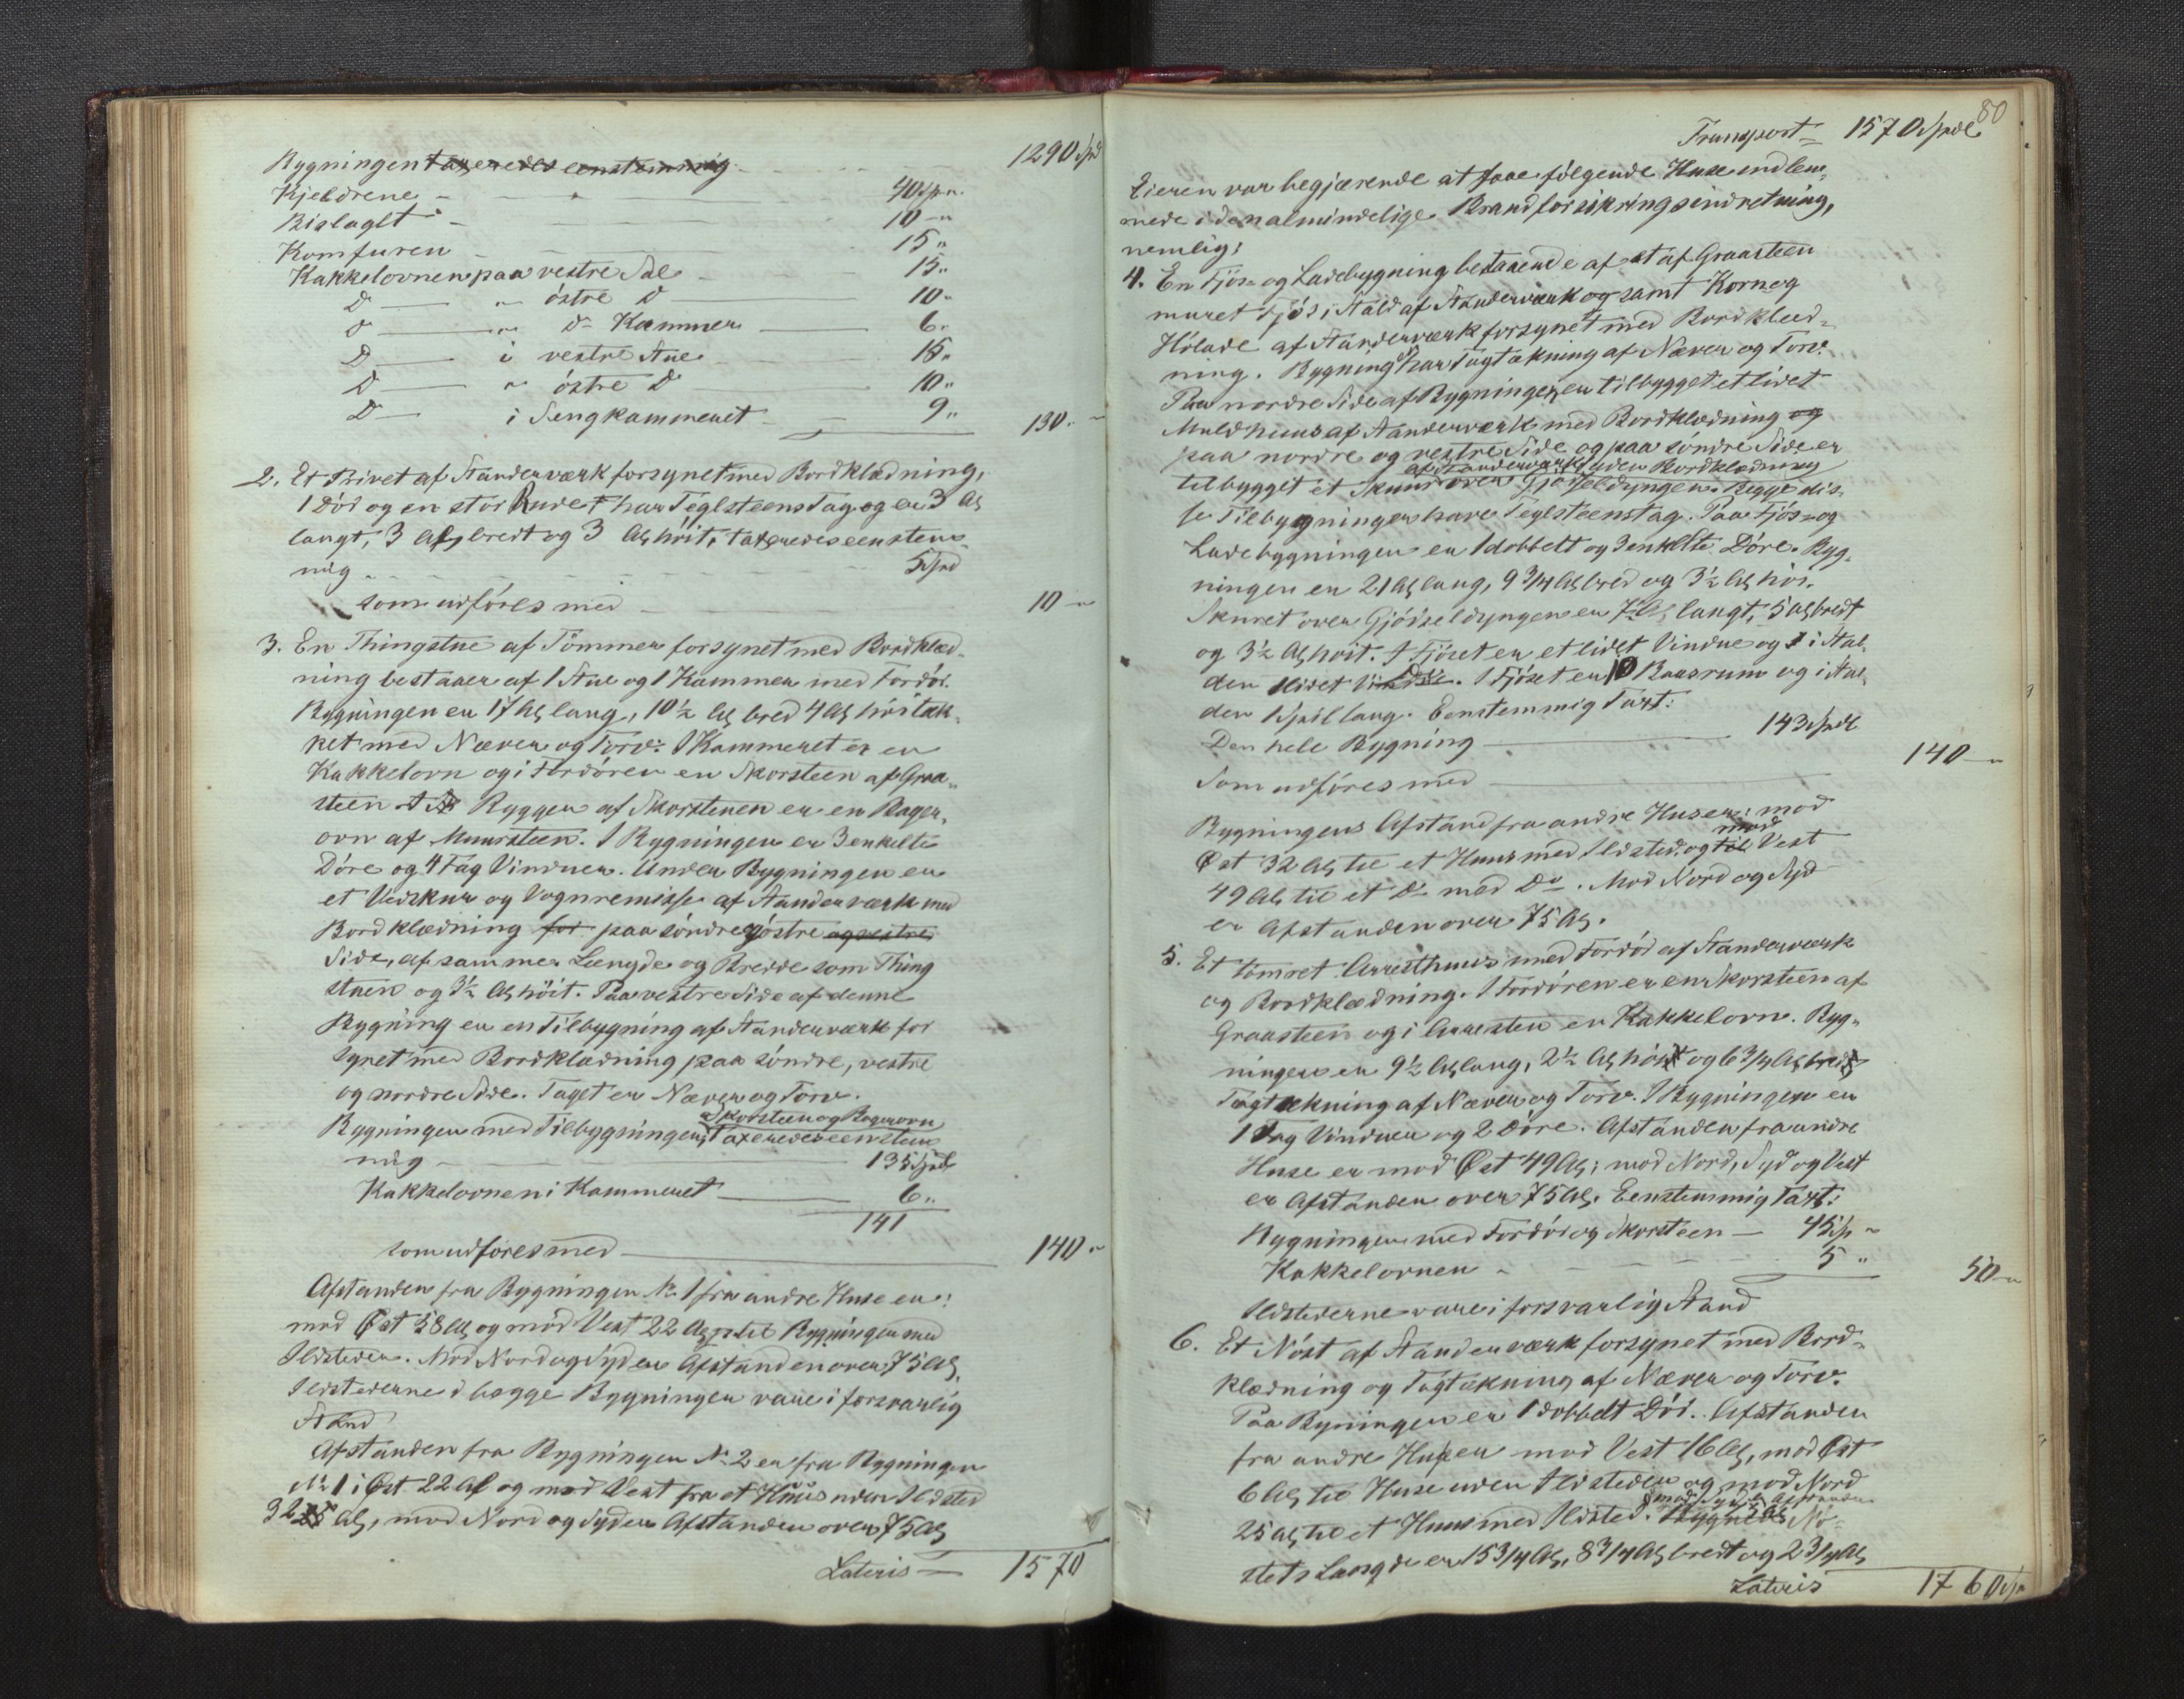 Bygningen taxeredes eenstemmig 1290 Spd
Kjeldrene 40 Spd.
Bislaget 10 "
Komfuren 15 "
Kakkelovnen paa vestre Sal 15 "
D — " östre D 10 "
D — " D Kammer — 6 "
D — i vestre Stue 15 "
D — " östre D 10 "
D — i Sengkammeret 9 " 130 "
2. Et Privet af Stænderværk forsynet med Bordklædning,
1 Dör og en stor Rude har Teglsteens Tag og er 3 Al
langt, 3 Al bredt og 3 Al höit, taxeredes eenstem-
mig 5 Spd
som udföres med 10 "
3. En Thingstue af Tömmer forsynet med Bordklæd-
ning bestaaer af 1 Stue og 1 Kammer med Fordör.
Bygningen er 17 Al lang, 10½ Al bred 4 Al höi tæk-
ket med Næver og Torv. I Kammeret er en
Kakkelovn og i Fordören en Skorsteen af Graa-
steen I Ryggen af Skorstenen er en Bager-
ovn af Muursteen. I Bygningen er 3 enkelte
Döre og 4 Fag Vinduer. Under Bygningen er
et Vedskur og Vognremisse af Stænderværk med
Bordklædning for paa söndre og östre og vestre
Side, af samme Længde og Bredde som Thing
stuen og 3½ Al höit. Paa vestre Side af denne
Bygning er en Tilbygning af Stænderværk for
synet med Bordklædning paa söndre, vestre
og nordre Side. Taget er Næver og Torv.
Skorsteen og Bagerovn
Bygningen med Tilbygningen, Taxeredes eenstem
mig — 135 Spd
Kakkelovnen i Kammeret — 6 "
141
som udföres med — 140 "
Afstanden fra Bygningen No 1 fra andre Huse er:
mod Öst 58 Al og mod Vest 22 Al til Bygninger med
Ildsteder. Mod Nord og Syd er Afstanden over 75 Al,
Ildstederne i begge Bygninger vare i forsvarlig
Stand
Afstanden fra Bygningen No 2 er fra Bygningen
No 1 i Öst 22 Al og mod Vest fra et Huus uden Ildsted
32 Al, mod Nord og Syd er Afstanden over 75 Al
Lateris — 1570
80
Transport 1570 Spdl
Eieren var begjærende at faae fölgende Huse indlem-
mede i den almindelige Brandforsikringsindretning,
nemlig:
4. En Fjös- og Ladebygning bestaaende af et af Graasteen
muret Fjös, Stald af Stænderværk og samt Korn og
Hölade af Stænderværk forsynet med Bordklæd-
ning. Bygningen har Tagtækning af Næver og Torv.
Paa nordre Side af Bygningen, er tilbygget et lidet
Muldhuus af Stænderværk med Bordklædning og
paa nordre og vestre Side og paa söndre Side er
af Stænderværk uden Bordklædning
tilbygget et Skuur over Gjödseldyngen. Begge dis-
se Tilbygninger have Teglsteenstag. Paa Fjös- og
Ladebygningen er 1 dobbelt og 3 enkelte Döre. Byg-
ningen er 21 Al lang, 9 3/4 Al bred og 3½ Al höi.
Skuret over Gjödseldyngen er 7½ Al langt, 5 Al bredt
og 3½ Al höit. I Fjöset er et lidet Vindue og i Stal-
den 1 lidet Vindue. I Fjöset er 10 Baasrum og i Stal-
den 1 Spillaug. Eenstemmig Taxt:
Den hele Bygning — 143 Spdl
Som udföres med — 140 "
Bygningens Afstand fra andre Huse er: mod
Öst 32 Al til et Huus med Ildsted, og til mod Vest
49 Al til et Do med Do. Mod Nord og Syd
er Afstanden over 75 Al.
5. Et tömret Arresthuus med Fordör af Stænderværk
og Bordklædning. I Fordören er en Skorsteen af
Graasteen og i Arresten en Kakkelovn. Byg-
ningen er 9½ Al lang, 2½ Al höi og 6 3/4 Al bred
Tagtækning af Næver og Torv. I Bygningen er
1 Fag Vinduer og 2 Döre. Afstanden fra andre
Huse er mod Öst 49 Al; mod Nord, Syd og Vest
er Afstanden over 75 Al. Eenstemmig Taxt:
Bygningen med Fordör og Skorsteen — 45 Sp "
Kakkelovnen 5 " 50 "
Ildstederne vare i forsvarlig Stand
6. Et Nöst af Stænderværk forsynet med Bord-
klædning og Tagtækning af Næver og Torv.
Paa Bygningen er 1 dobbelt Dör. Afstanden
fra andre Huse er mod Vest 16 Al, mod Öst
6 Al til Huse uden Ildsteder og mod Nord
mod Syd er Afstanden
25 Al til et Huus med Ildsted. Nö-
stets Længde er 15 3/4 Al, 8 3/4 Al bredt og 2 3/4 Al
Lateris 1760 Sp